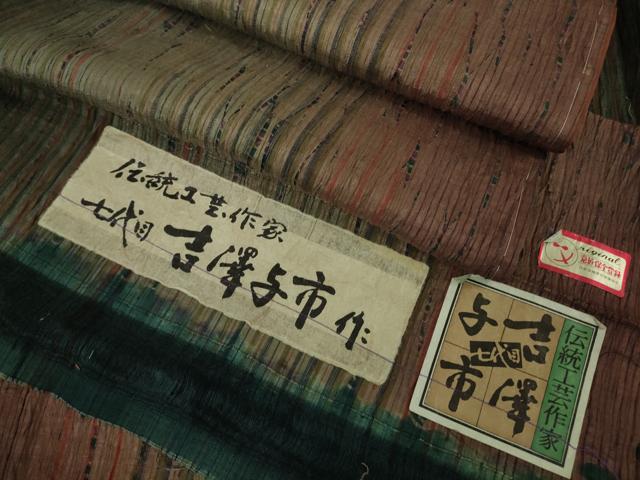 伝統工芸作家
七代目 吉澤与市 作
伝統工芸作家
吉澤
七代目
与市
original